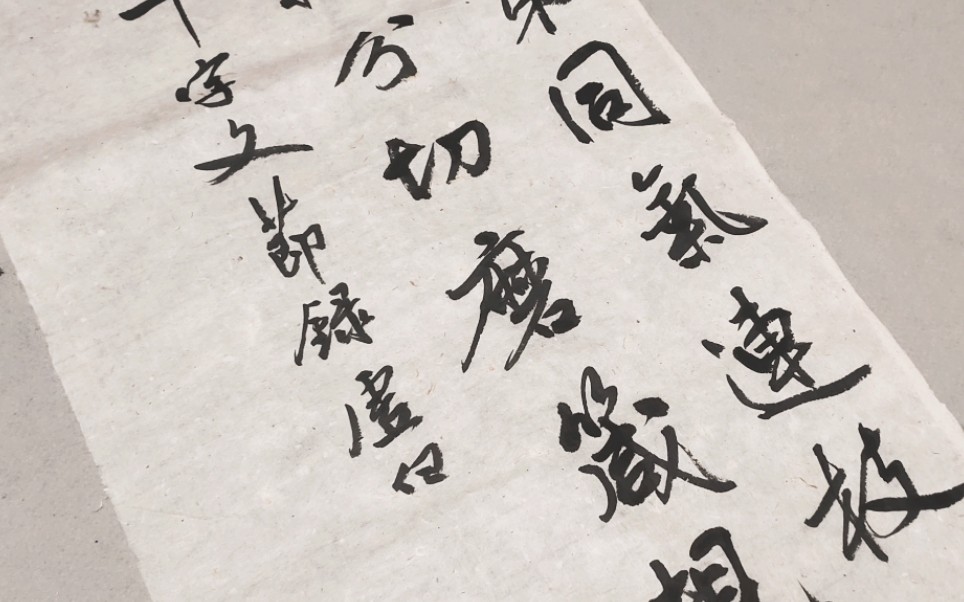 同氣連枝
分切磨箴
千字文節錄